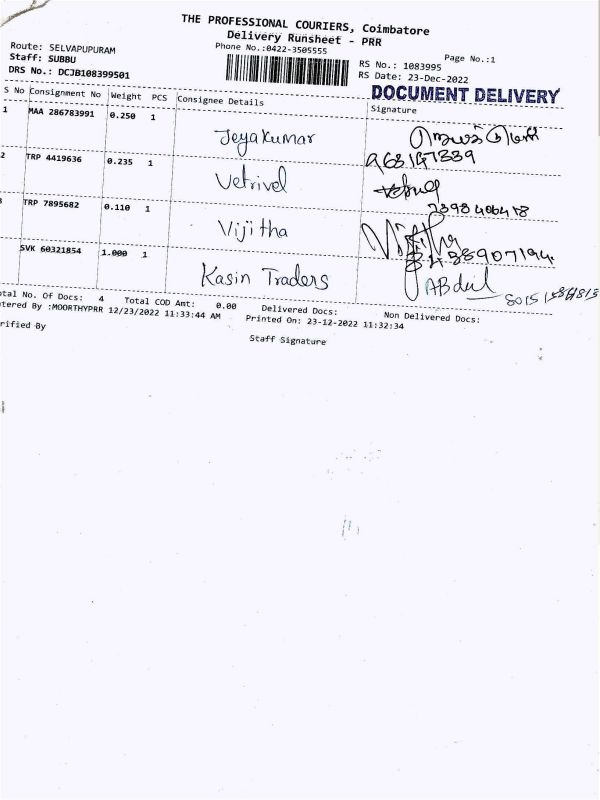 THE PROFESSIONAL COURIERS, Coimbatore
Delivery Runsheet - PRR
Phone No.:0422-3505555
Page No.:1
Route: SELVAPUPURAM
Staff: SUBBU
DRS No.: DCJB108399501
RS No.: 1083995
RS Date: 23-Dec-2022
DOCUMENT DELIVERY
S No Consignment No Weight PCS Consignee Details Signature
1 MAA 286783991 0.250 1 Jeyakumar
2 TRP 4419636 0.235 1 Vetrivel
7398406418
TRP 7895682 0.110 1 Vijitha Vijitha
SVK 60321854 1.000 1 Kasin Traders ABdul
otal No. Of Docs: 4 Total COD Amt: 0.00 Delivered Docs: Non Delivered Docs:
tered By :MOORTHYPRR 12/23/2022 11:33:44 AM Printed On: 23-12-2022 11:32:34
rified By
Staff Signature